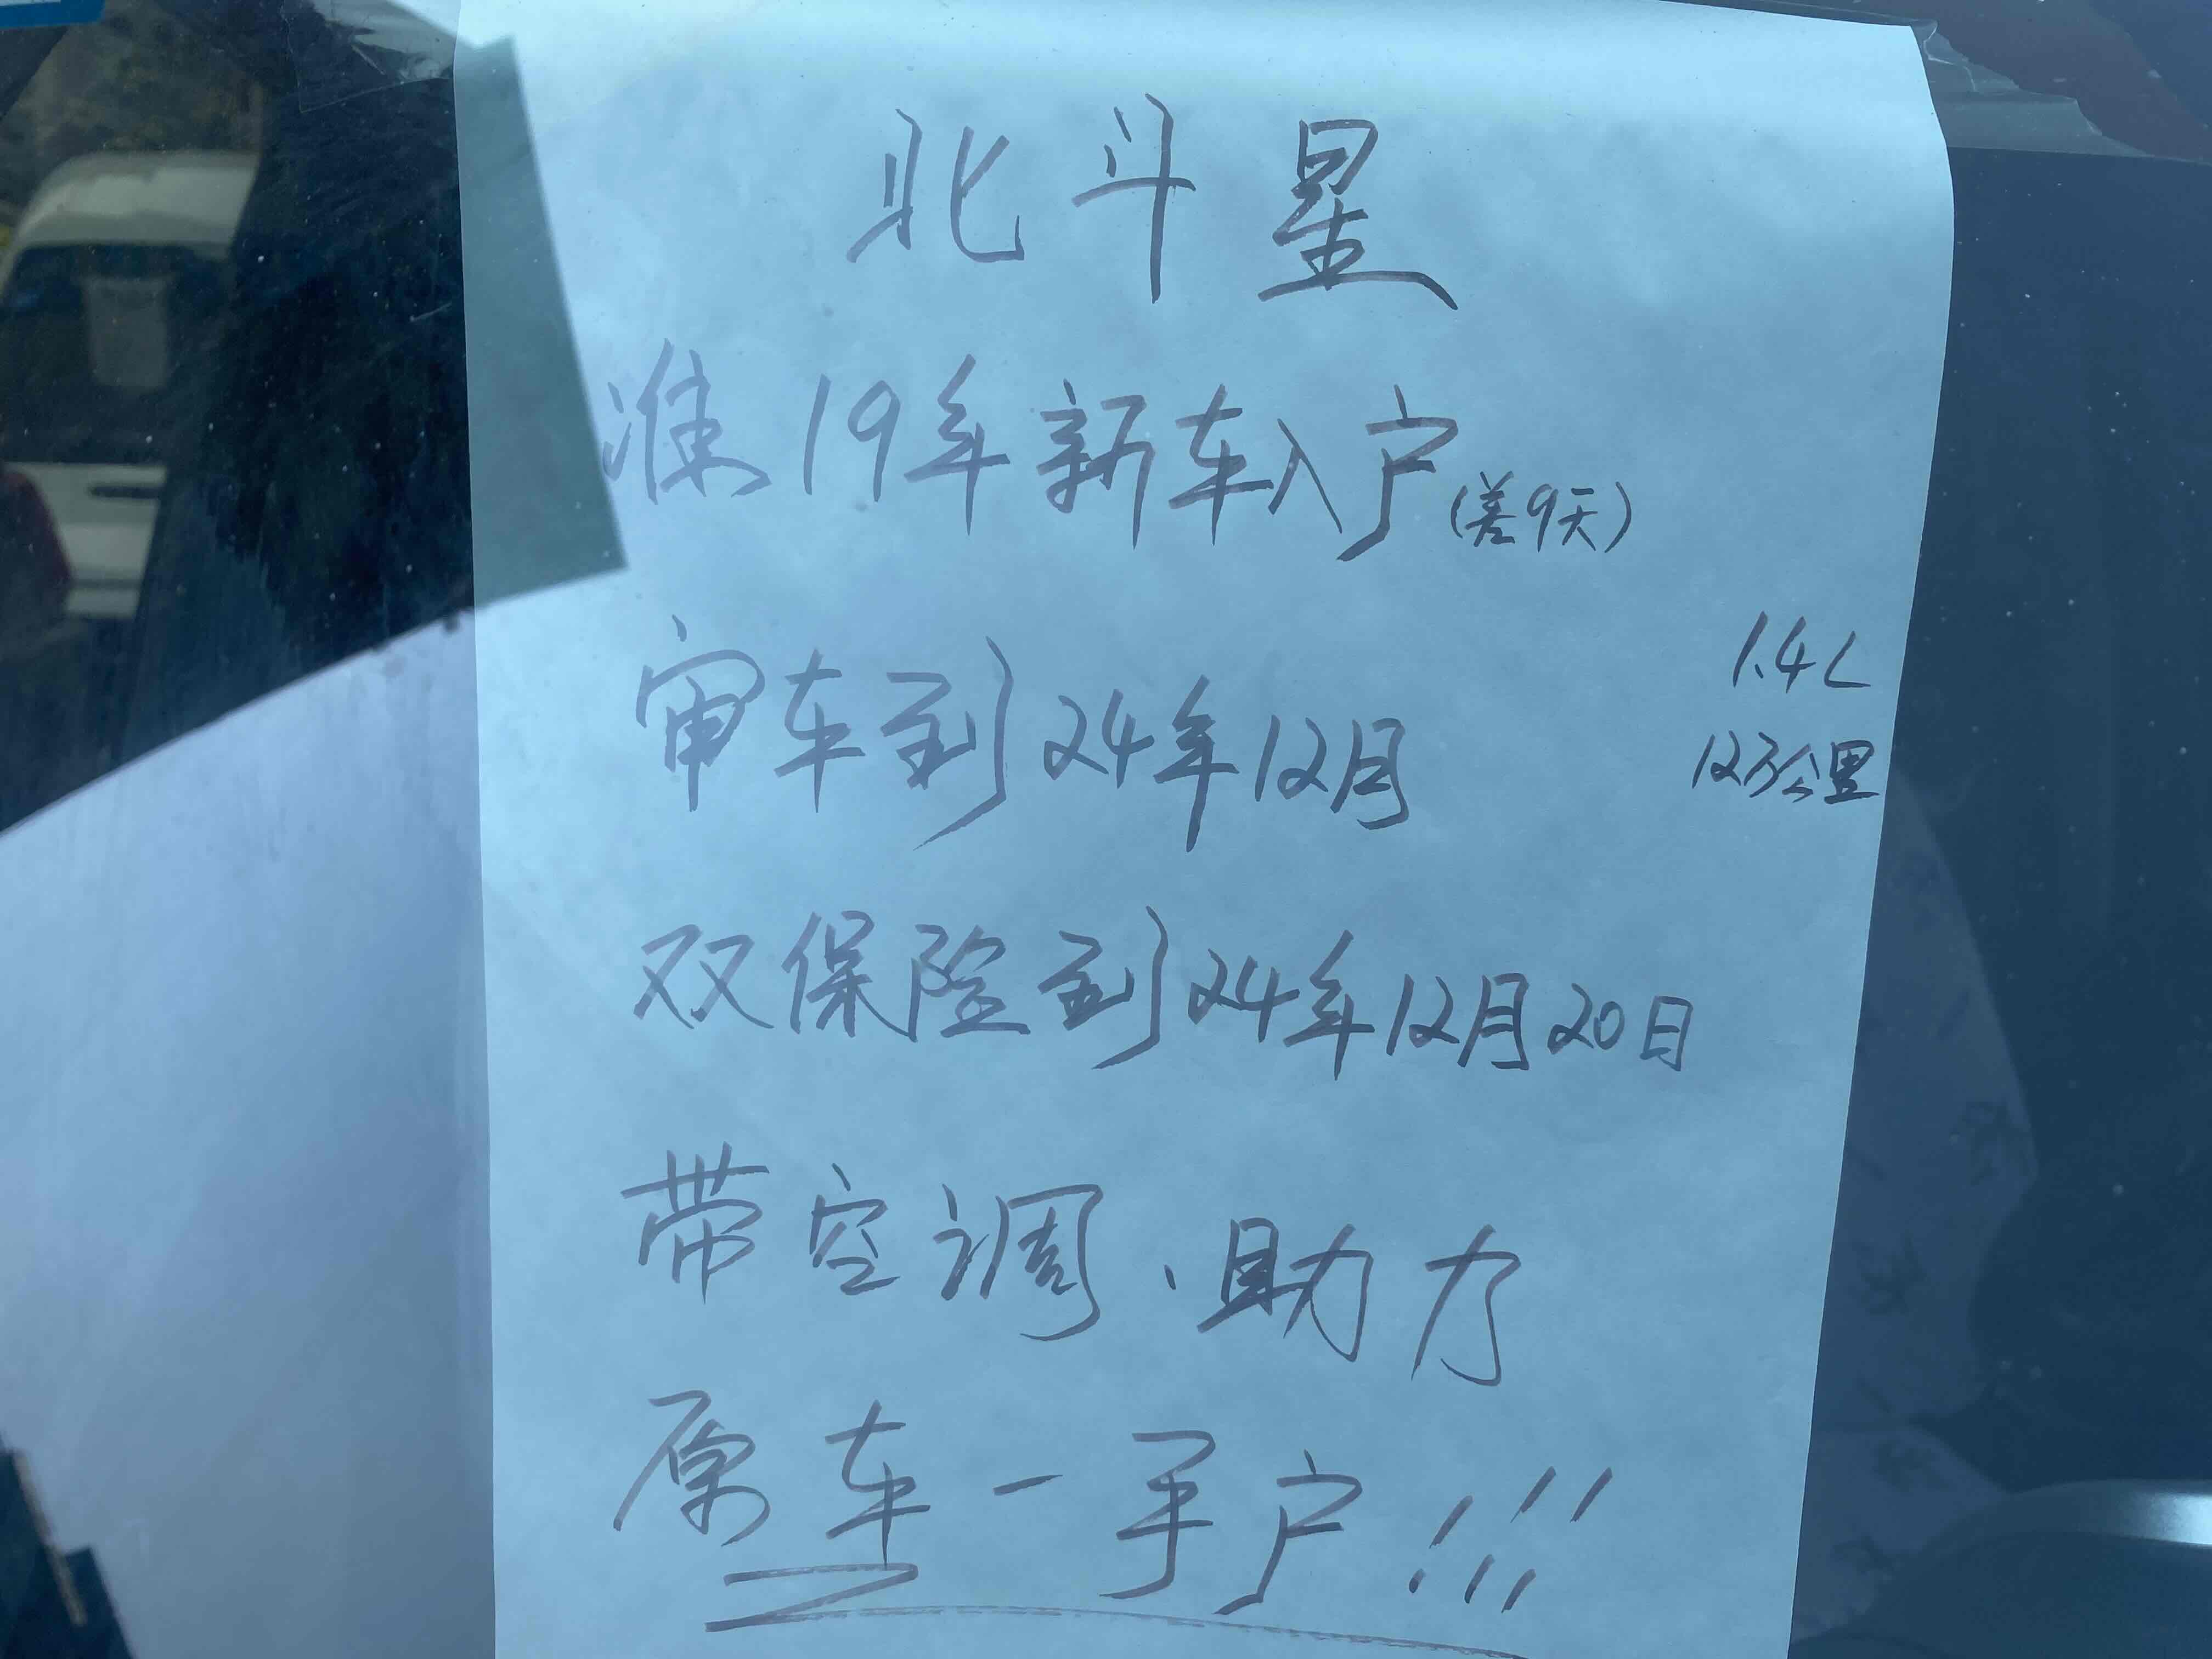 北斗星
准19年新车入户(差9天)
1.4L
审车到24年12月
12万公里
双保险到24年12月20日
带空调、助力
原车一手户!!!